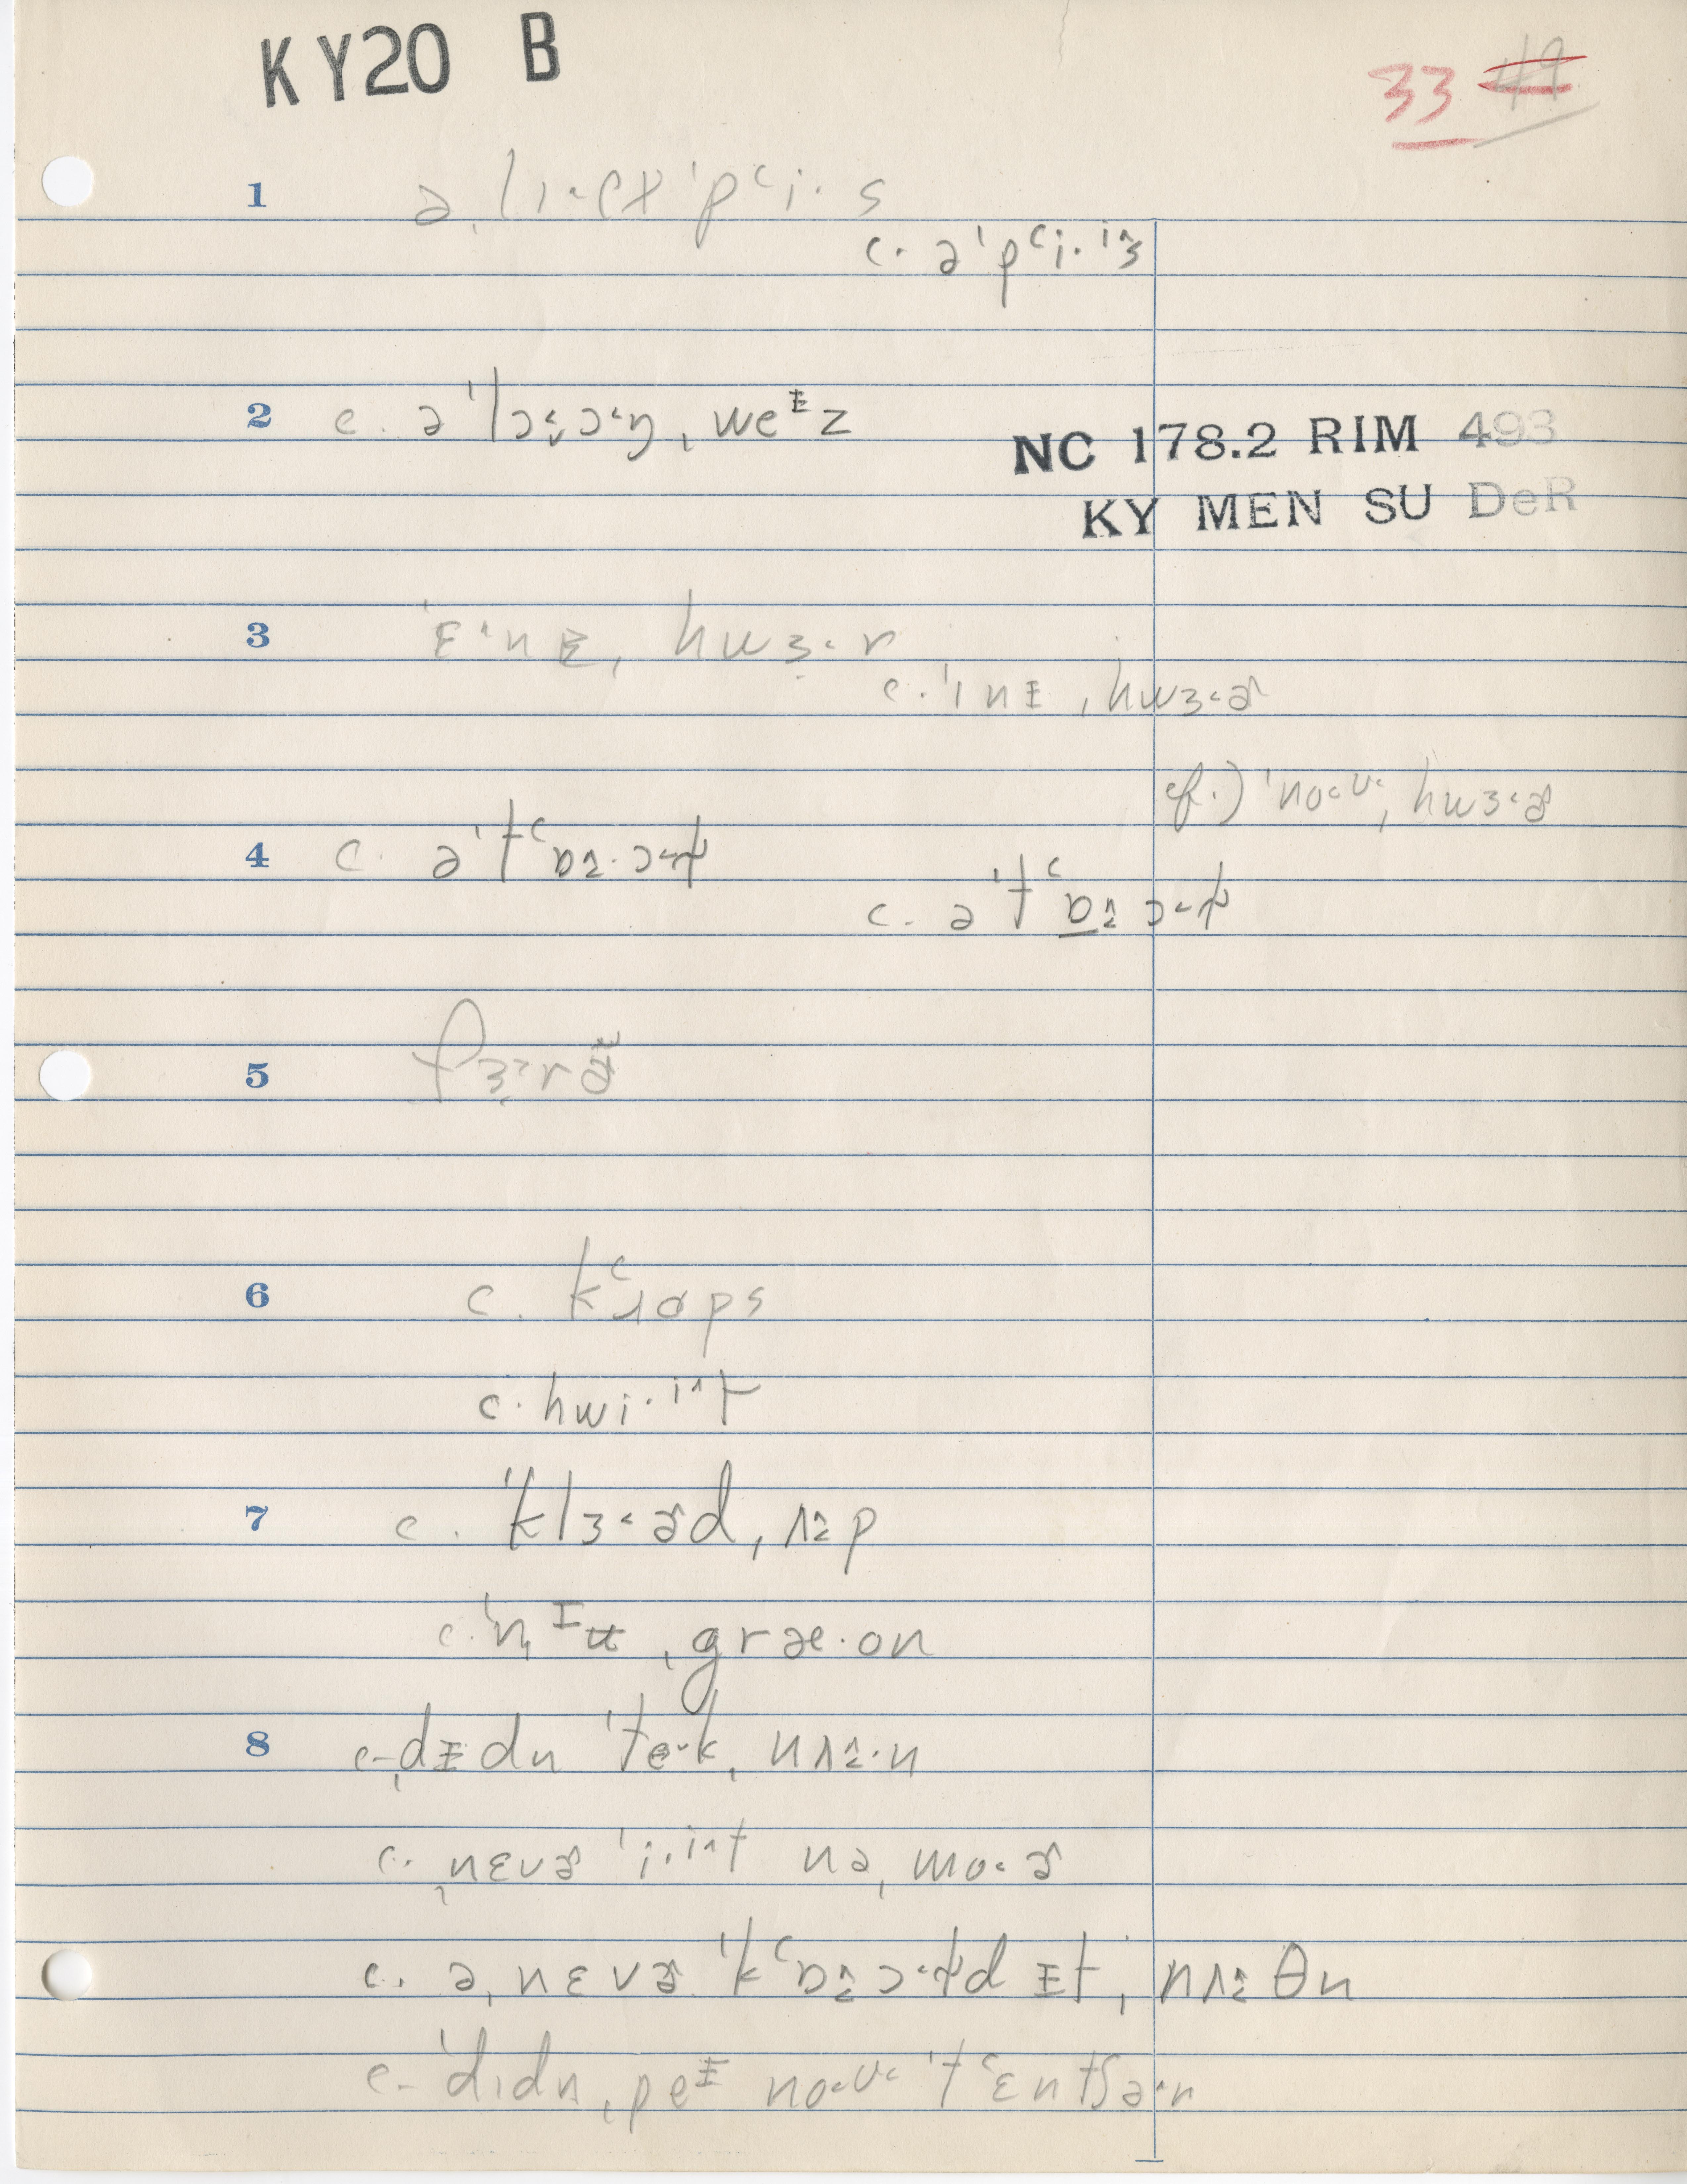 KY20 B
33 49
1 ə ˌlɪ˞ᶜtl ˈpʻi· s
c. ə ˈpʻi·ⁱ˄z
2 c. ə ˈlɔ˔˂ɔ˂ŋ ˌweᵻz
NC 178.2 RIM 493
KY MEN SU DeR
3 ˈɛ˂nᵻ ˌhwɜ˂r
c. ˈɪnᵻ ˌhwɜ˂ɚ
cf.) ˈno˂ʊ˂ ˌhwɜ˂ɚ
4 c. ə ˈtʻɒ˔·ɔ˂ɫ
c. ə ˈtʻɒ˔ɔ˂ɫ
5 fɜ˞rə
6 c. kʻɹɑps
c. hwi·ⁱ˄t
7 c. ˈklɜ˂ɚd ˌʌ˔p
c. ˈn̩ᵻʉ ˌgræ·ən
8 c. ˌdᵻdn ˈte˂k ˌnʌ˔·n
c. ˌnɛvɚ ˈi·ⁱ˄t nə ˌmo˂ɚ
c. ə ˌnɛvɚ ˈkʻɒ˔ɔ˂ɫd ᵻt ˌnʌ˔θn
c. ˈdɪdn ˌpeᵻ no˂ʊ˂ ˈtʻɛntʃə˂n